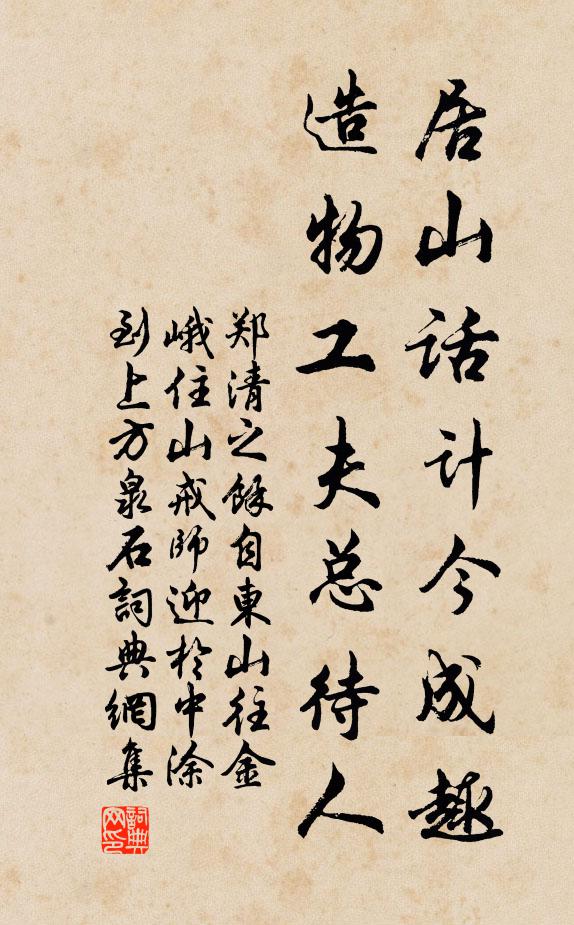 居山话计今成趣
造物工夫总待人
郑清之馀自東山往金
峨住山戒師迎於中涂
到上方泉石詞典網集
詞典网印